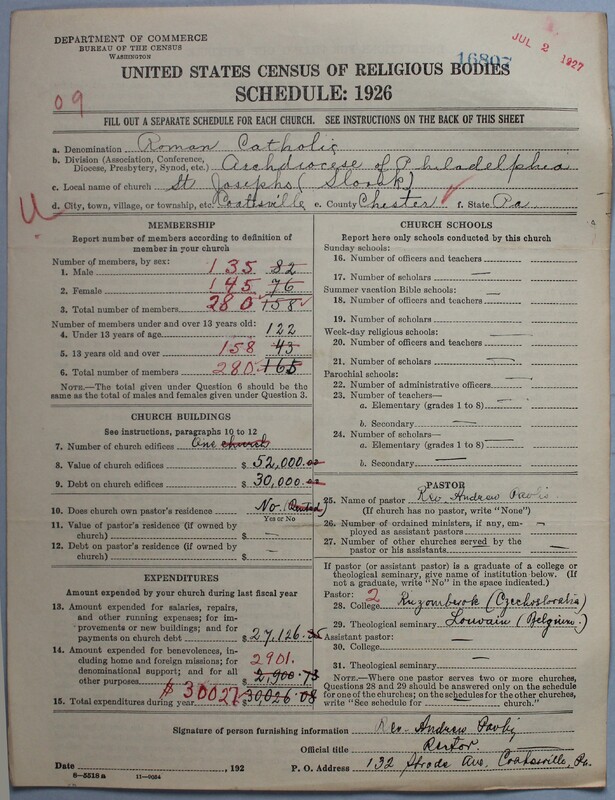 DEPARTMENT OF COMMERCE
BUREAU OF THE CENSUS
WASHINGTON
16807
JUL 2 1927
UNITED STATES CENSUS OF RELIGIOUS BODIES
SCHEDULE: 1926
09
FILL OUT A SEPARATE SCHEDULE FOR EACH CHURCH. SEE INSTRUCTIONS ON THE BACK OF THIS SHEET
a. Denomination Roman Catholic
b. Division (Association, Conference, Diocese, Presbytery, Synod, etc.) Archdiocese of Philadelphia
c. Local name of church St Josephs (Slovak)
d. City, town, village, or township, etc. Coatesville e. County Chester f. State Pa
MEMBERSHIP
Report number of members according to definition of
member in your church
Number of members, by sex:
1. Male 135 82
2. Female 145 76
3. Total number of members 280 158
Number of members under and over 13 years old:
4. Under 13 years of age 122
5. 13 years old and over 158 43
6. Total number of members 280 165
NOTE.—The total given under Question 6 should be
same as the total of males and females given under Question 3.
CHURCH BUILDINGS
See instructions, paragraphs 10 to 12
7. Number of church edifices One church
8. Value of church edifices $ 52,000.00
9. Debt on church edifices $ 30,000.00
10. Does church own pastor's residence? No (Rented)
Yes or No
11. Value of pastor's residence (if owned by
church) $ —
12. Debt on pastor's residence (if owned by
church) $ —
EXPENDITURES
Amount expended by your church during last fiscal year
13. Amount expended for salaries, repairs,
and other running expenses; for im-
provements or new buildings; and for
payments on church debt $ 27,126.35
14. Amount expended for benevolences, in-
cluding home and foreign missions; for
denominational support; and for all
other purposes 2901. $ 2,900.73
15. Total expenditures during year $ 30027 $ 30,026.08
CHURCH SCHOOLS
Report here only schools conducted by this church
Sunday schools:
16. Number of officers and teachers —
17. Number of scholars —
Summer vacation Bible schools:
18. Number of officers and teachers —
19. Number of scholars —
Week-day religious schools:
20. Number of officers and teachers —
21. Number of scholars —
Parochial schools:
22. Number of administrative officers —
23. Number of teachers—
a. Elementary (grades 1 to 8) —
b. Secondary —
24. Number of scholars—
a. Elementary (grades 1 to 8) —
b. Secondary —
PASTOR
25. Name of pastor Rev. Andrew Pavlis
(If church has no pastor, write "None")
26. Number of ordained ministers, if any, em-
ployed as assistant pastors —
27. Number of other churches served by the
pastor or his assistants —
If pastor (or assistant pastor) is a graduate of a college or
theological seminary, give name of institution below. (If
not a graduate, write "No" in the space indicated.)
Pastor: 2
28. College Ruzomberok (Czechoslovakia)
29. Theological seminary Louvain (Belgium.)
Assistant pastor:
30. College —
31. Theological seminary —
NOTE.—Where one pastor serves two or more churches,
Questions 28 and 29 should be answered only on the schedule
for one of the churches; on the schedules for the other churches,
write "See schedule for church."
Signature of person furnishing information Rev. Andrew
Official title Rector.
Date , 192 P. O. Address 132 Strode Ave. Coatesville, Pa.
8—5518 a 11—9054